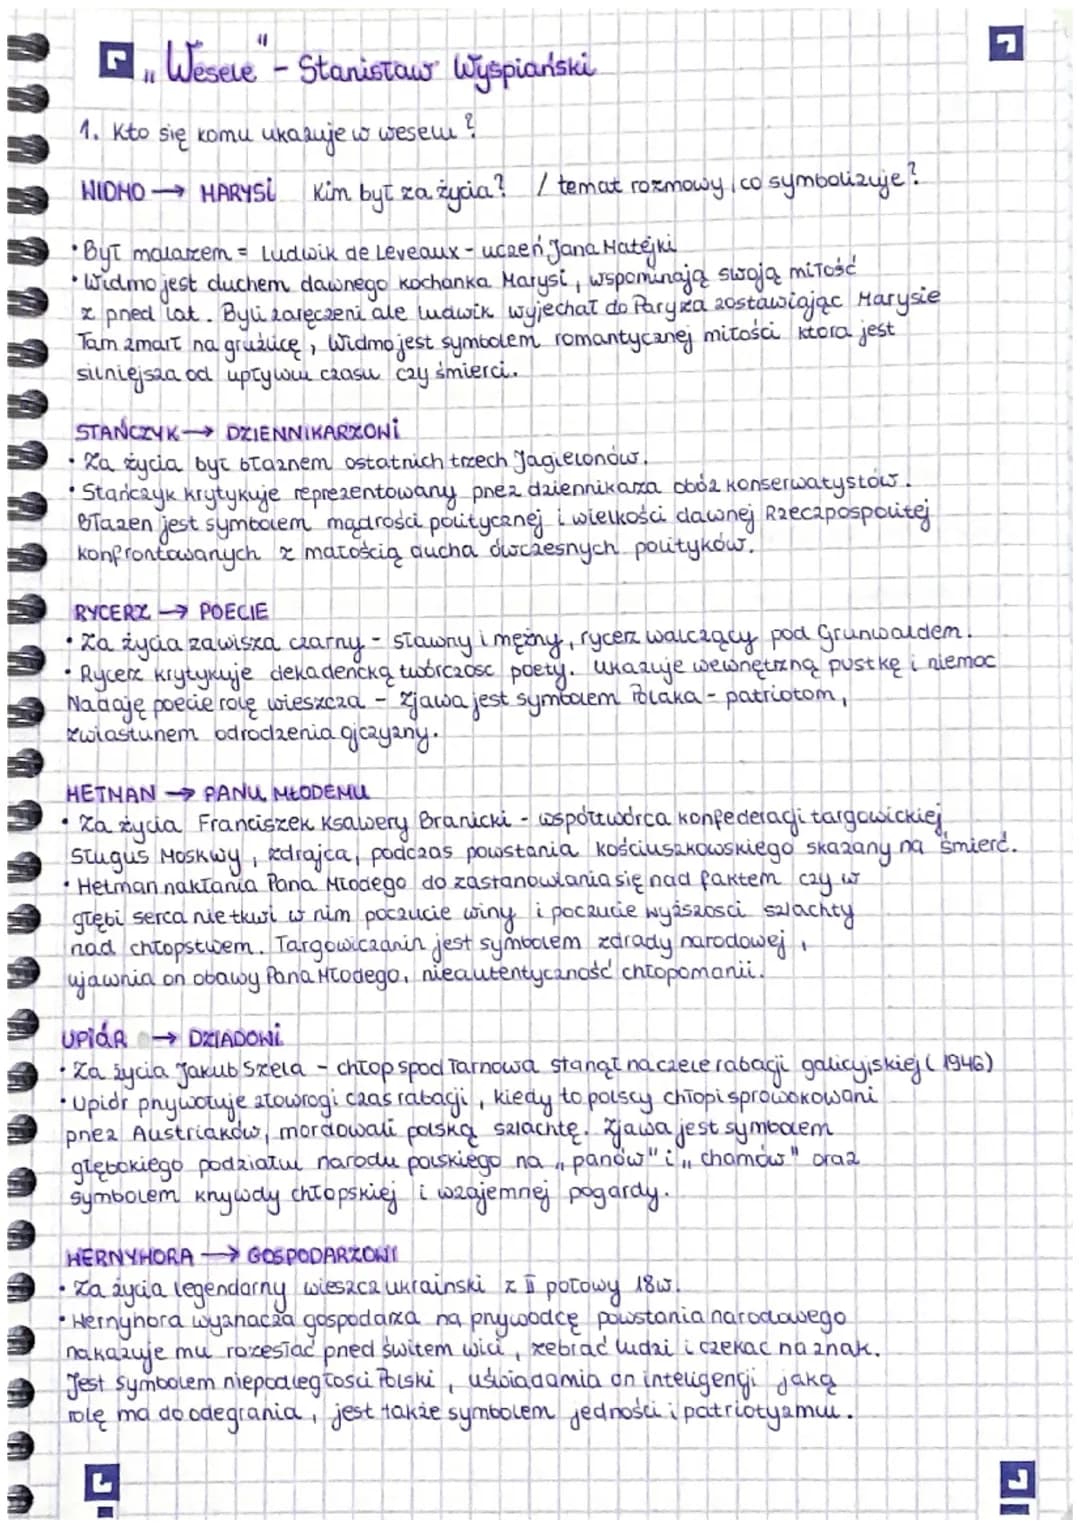 „Wesele" - Stanisław Wyspiański
1. Kto się komu ukazuje w weselu?
WIDMO → MARYSI Kim był za życia? / temat rozmowy, co symbolizuje?
• Był malarzem = Ludwik de Leveaux - uczeń Jana Matejki
• Widmo jest duchem dawnego kochanka Marysi, wspominają swoją miłość
z pned lat. Byli zaręczeni ale Ludwik wyjechał do Paryża zostawiając Marysie
Tam zmarł na gruźlicę, Widmo jest symbolem romantycznej miłości która jest
silniejsza od upływu czasu czy śmierci.
STAŃCZYK → DZIENNIKARZOWI
• Za życia był błaznem ostatnich trzech Jagielonów.
• Stańczyk krytykuje reprezentowany pnez dziennikaza obóz konserwatystów.
Błazen jest symbolem mądrości politycznej i wielkości dawnej Rzeczpospolitej
konfrontowanych z małością ducha ówczesnych polityków.
RYCERZ → POECIE
• Za życia zawisza czarny - sławny i mężny, rycerz walczący pod Grunwaldem.
• Rycerz krytykuje dekadencką twórczosc poety. Ukazuje wewnętrzną pustkę i niemoc
Nadaję poecie rolę wieszcza - Zjawa jest symbolem Polaka - patriotom,
zwiastunem odrodzenia ojczyzny.
HETMAN → PANU MŁODEMU
• Za życia Franciszek Ksawery Branicki - współtwórca konfederacji targowickiej
Sługus Moskwy, zdrajca, podczas powstania kościuszkowskiego skazany na śmierć.
• Hetman nakłania Pana Młodego do zastanowiania się nad faktem czy w
głębi serca nie tkwi w nim poczucie winy i poczucie wyższosci szlachty
nad chłopstwem. Targowiczanin jest symbolem zdrady narodowej,
ujawnia on obawy Pana Młodego, nieautentyczność chłopomanii.
UPIÓR → DZIADOWI
• Za życia Jakub Szela - chłop spod Tarnowa stanął na czele rabacji galicyjskiej (1946)
• Upiór pnywołuje złowrogi czas rabacji, kiedy to polscy chłopi sprowokowani
pnez Austriaków, mordowali polską szlachtę. Zjawa jest symbolem
głębokiego podziału narodu polskiego na „panów" i „chamów" oraz
symbolem knywdy chłopskiej i wzajemnej pogardy.
WERNYHORA → GOSPODARZOWI
• Za życia legendarny wieszcz ukrainski z II połowy 18w.
• Wernyhora wyznacza gospodarza na pnywodcę powstania narodowego
nakazuje mu rozesłać pned świtem wici, zebrać ludzi i czekac na znak.
Jest symbolem niepodległosci Polski, uświadamia on inteligencji jaką
rolę ma do odegrania, jest także symbolem jedności i patriotyzmu.